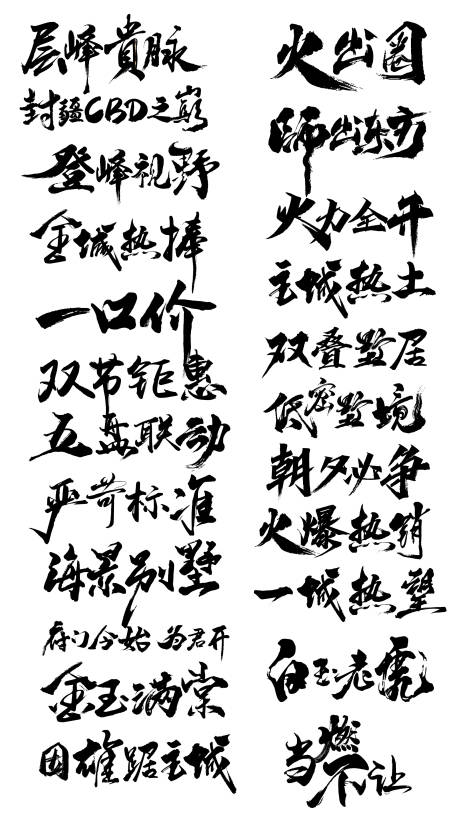 层峰貴脉
封疆CBD之巅
登峰视野
全城热捧
一口价
双节钜惠
五盘联动
严苛标准
海景别墅
府门今始 为君开
金玉满棠
因雄踞主城
火出圈
师出东方
火力全开
主城热土
双叠墅居
低密墅境
朝夕必争
火爆热销
一城热望
白玉老虎
当燃不让